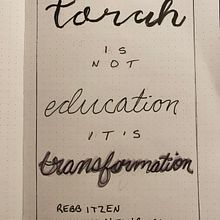 torah
IS
NOT
education
IT'S
transformation
REBBITZEN